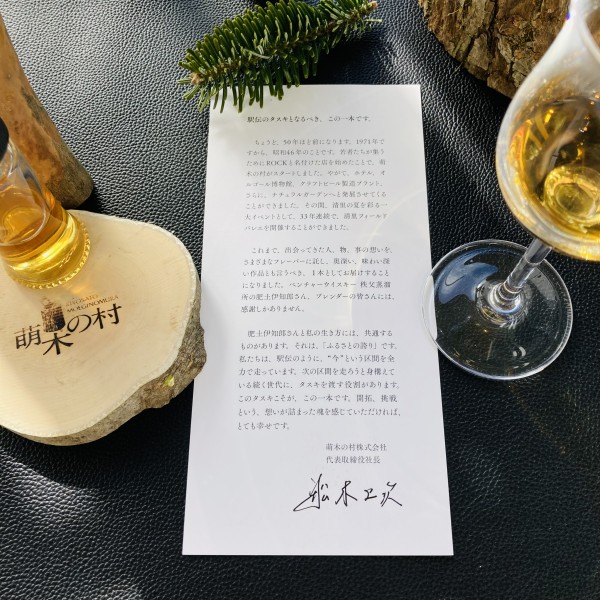 駅伝のタスキとなるべき、この一本です。
ちょうど、50年ほど前になります。1971年で
すから、昭和46年のことです。若者たちが集う
ためにROCKと名付けた店を始めたことで、萌
木の村がスタートしました。やがて、ホテル、オ
ルゴール博物館、クラフトビール製造プラント、
さらに、ナチュラルガーデンへと発展させてくる
ことができました。その間、清里の夏を彩る一
大イベントとして、33年連続で、清里フィールド
バレエを開催することができました。
これまで、出会ってきた人、物、事の想いを、
さまざまなフレーバーに託し、奥深い、味わい深
い作品とも言うべき、1本としてお届けすること
になりました。ベンチャーウイスキー 秩父蒸溜
所の肥土伊知郎さん、ブレンダーの皆さんには、
感謝しかありません。
肥土伊知郎さんと私の生き方には、共通する
ものがあります。それは、『ふるさとの誇り』です。
私たちは、駅伝のように、“今”という区間を全
力で走っています。次の区間を走ろうと身構えて
いる続く世代に、タスキを渡す役割があります。
このタスキこそが、この一本です。開拓、挑戦
という、想いが詰まった魂を感じていただければ、
とても幸せです。
萌木の村株式会社
代表取締役社長
舩木上次
KIYOSATO
MOEGINOMURA
萌木の村